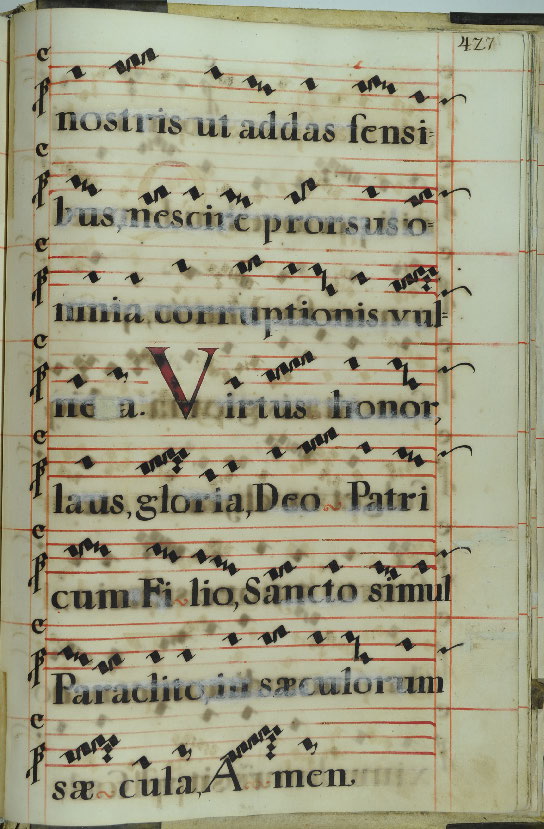 427
nostris ut addas sensi=
bus, nescire prorsus o=
mnia corruptionis vul=
ne a. Virtus honor,
laus, gloria, Deo Patri
cum Filio, Sancto simul
Paraclito, in sæculorum
sæcula, Amen.